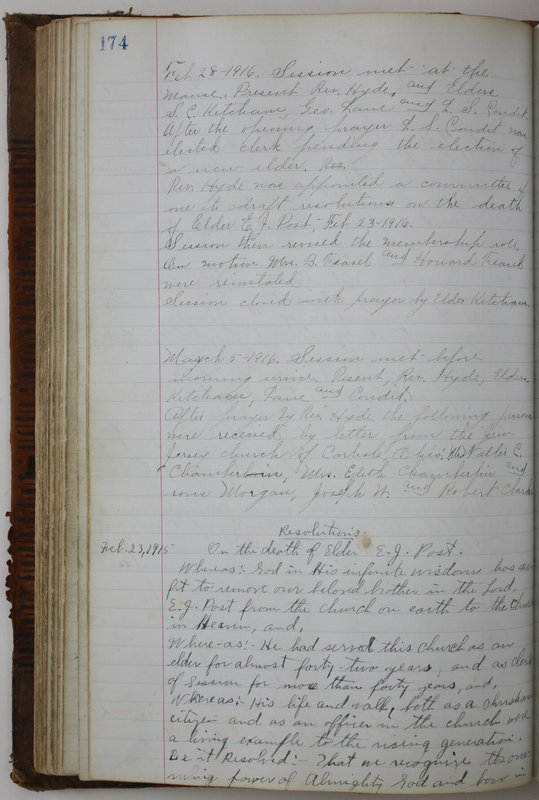 174
Feb 28-1916. Session met at the
Manse. Present Rev. Hyde, and Elders
S. C. Ketcham, Geo. Lane and L. S. Condit.
After the opening prayer L. S. Condit was
elected clerk pending the election of
a new elder. Rev.
Rev. Hyde was appointed a committee of
one to draft resolutions on the death
of Elder E. J. Post, Feb 23-1916.
Session then revised the membership role
On motion Mrs. B. Teasel and Howard Teasel
were reinstated
Session closed with prayer by Elder Ketcham.
March 5-1916. Session met before
morning service. Present, Rev. Hyde, Elders
Ketcham, Lane and Condit.
After prayer by Rev. Hyde the following persons
were received by letter from the New
Jersey church of Carlisle, Ohio: Walter C.
Chamberlain, Mrs. Edith Chamberlin and
sons Morgan, Joseph W. and Robert Clark
Resolutions-
Feb. 23, 1915 On the death of Elder E. J. Post.
Whereas:- God in His infinite wisdom has seen
fit to remove our beloved brother in the Lord,
E. J. Post from the church on earth to the Church
in Heaven, and,
Where-as:- He had served this church as an
elder for almost forty-two years, and as clerk
of Session for more than forty years, and,
Whereas:- His life and walk, both as a christian
citizen and as an officer in the church were
a living example to the rising generation.
Be it Resolved:- That we recognize the over
ruling power of Almighty God and bow in